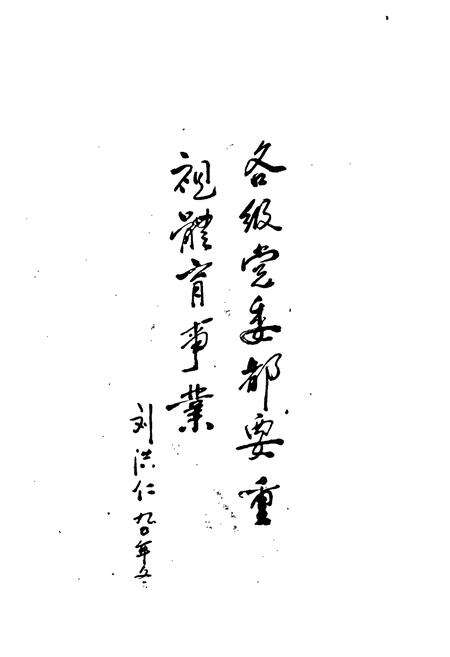 各级党委都要重
视體育事業
刘洪仁九〇年冬